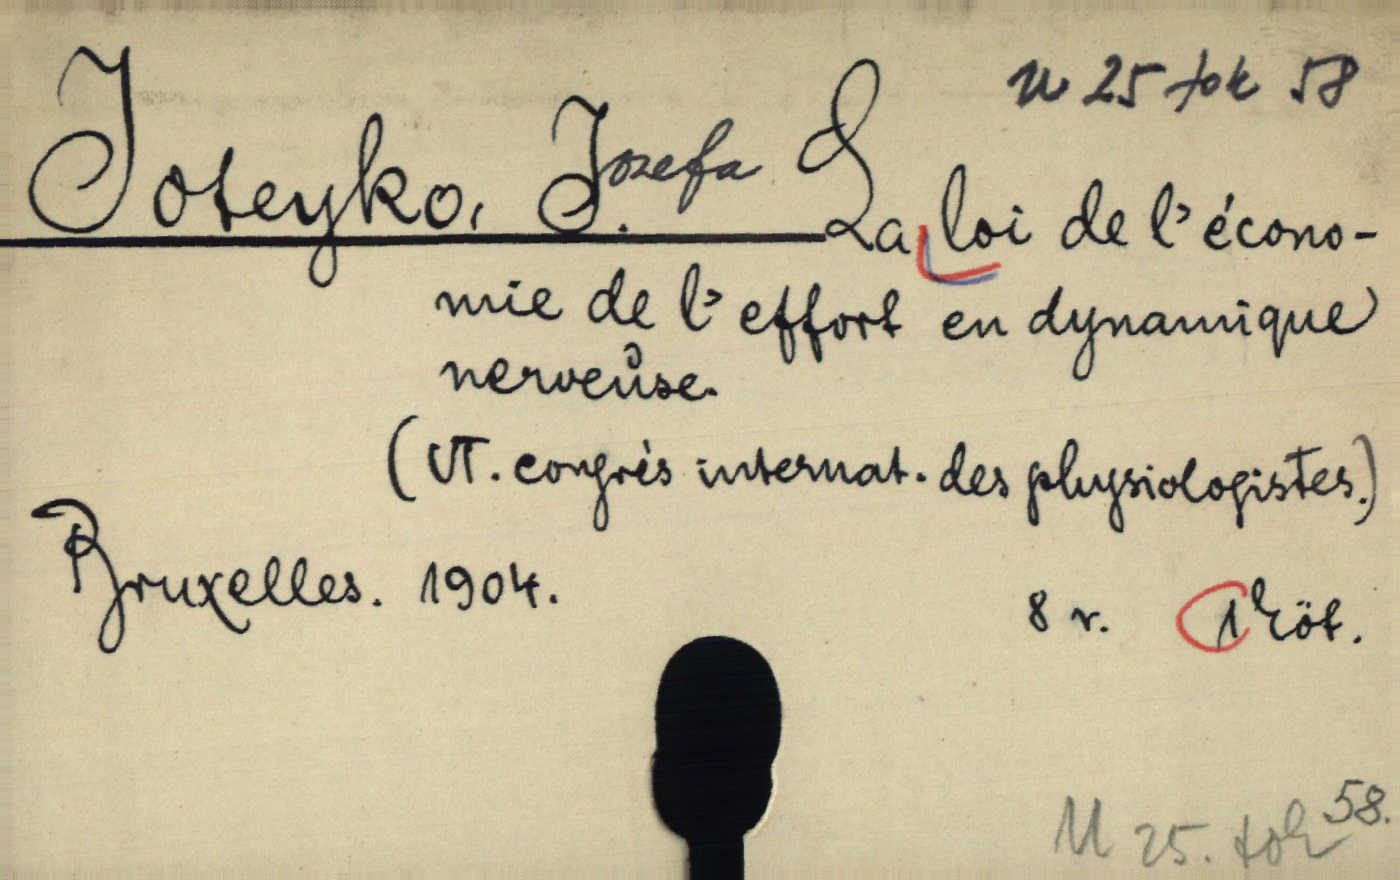 U 25 tok 58
Joteyko, J.ozefa La loi de l'écono-
mie de l'effort en dynamique
nerveuse.
(VI. congrès internat. des physiologistes.)
Bruxelles. 1904.
8 r. 1 Köt.
U 25. tok 58.